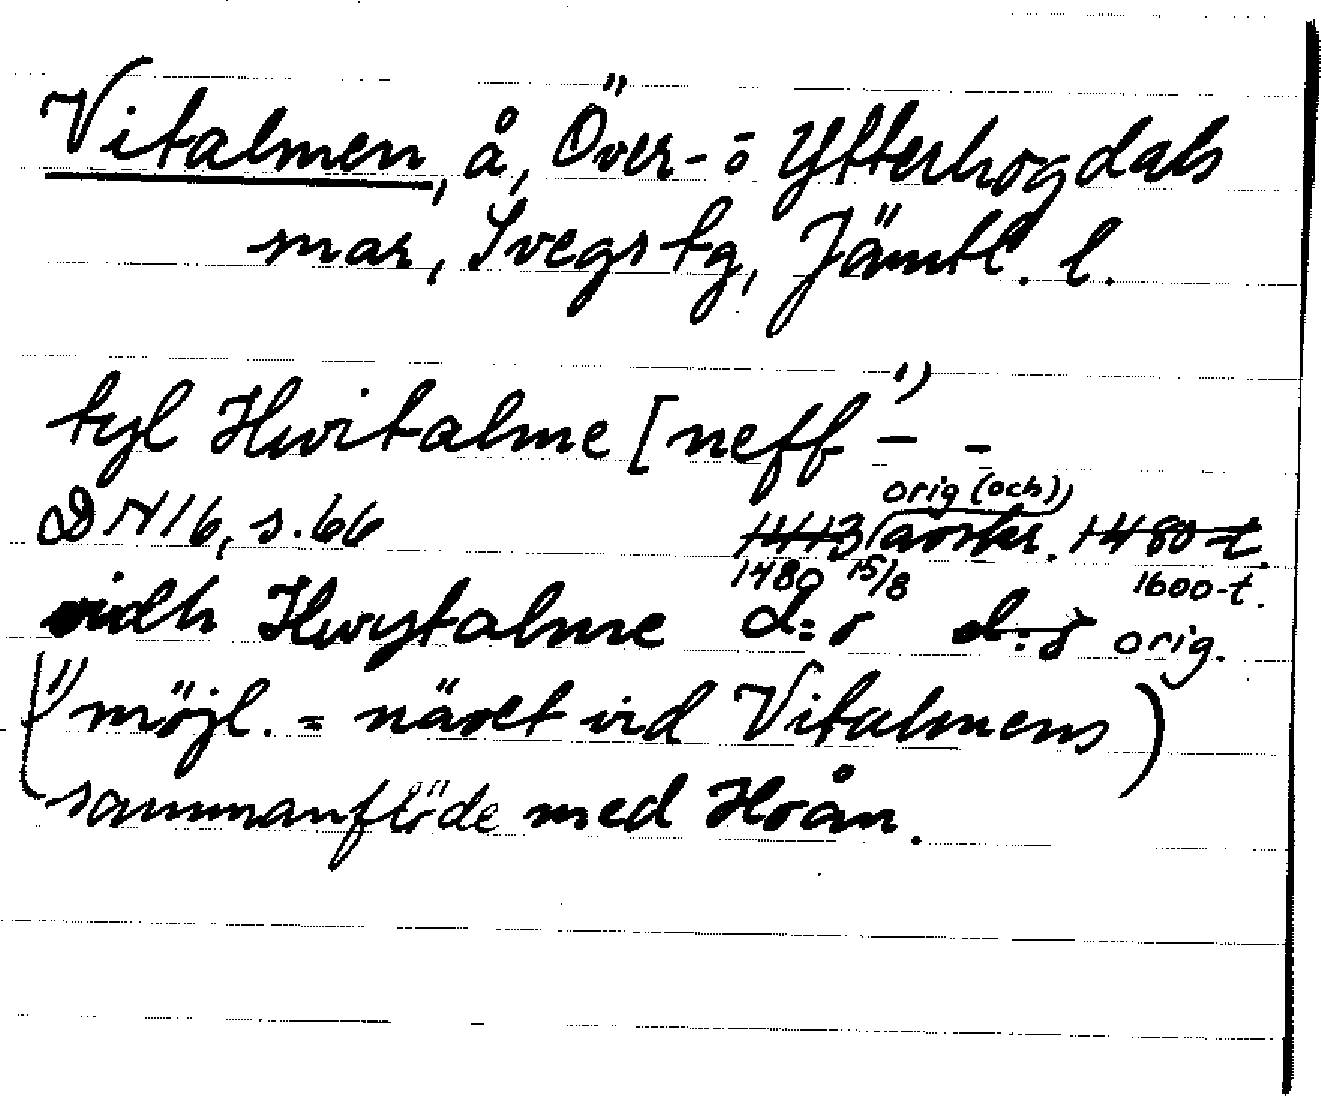 Vitalmen, å, Över- o Ytterhogdals
snar, Svegs tg, Jämtl. l.
tyl Hwitalme [neff 1) – -
orig (och))
DN 16, s. 66 1413 (avskr. 1480-t.
1480 15/8 1600-t.
widh Hwytalme d:o d:o orig.
(1) möjl. = näset vid Vitalmens)
sammanflöde med Hoån.